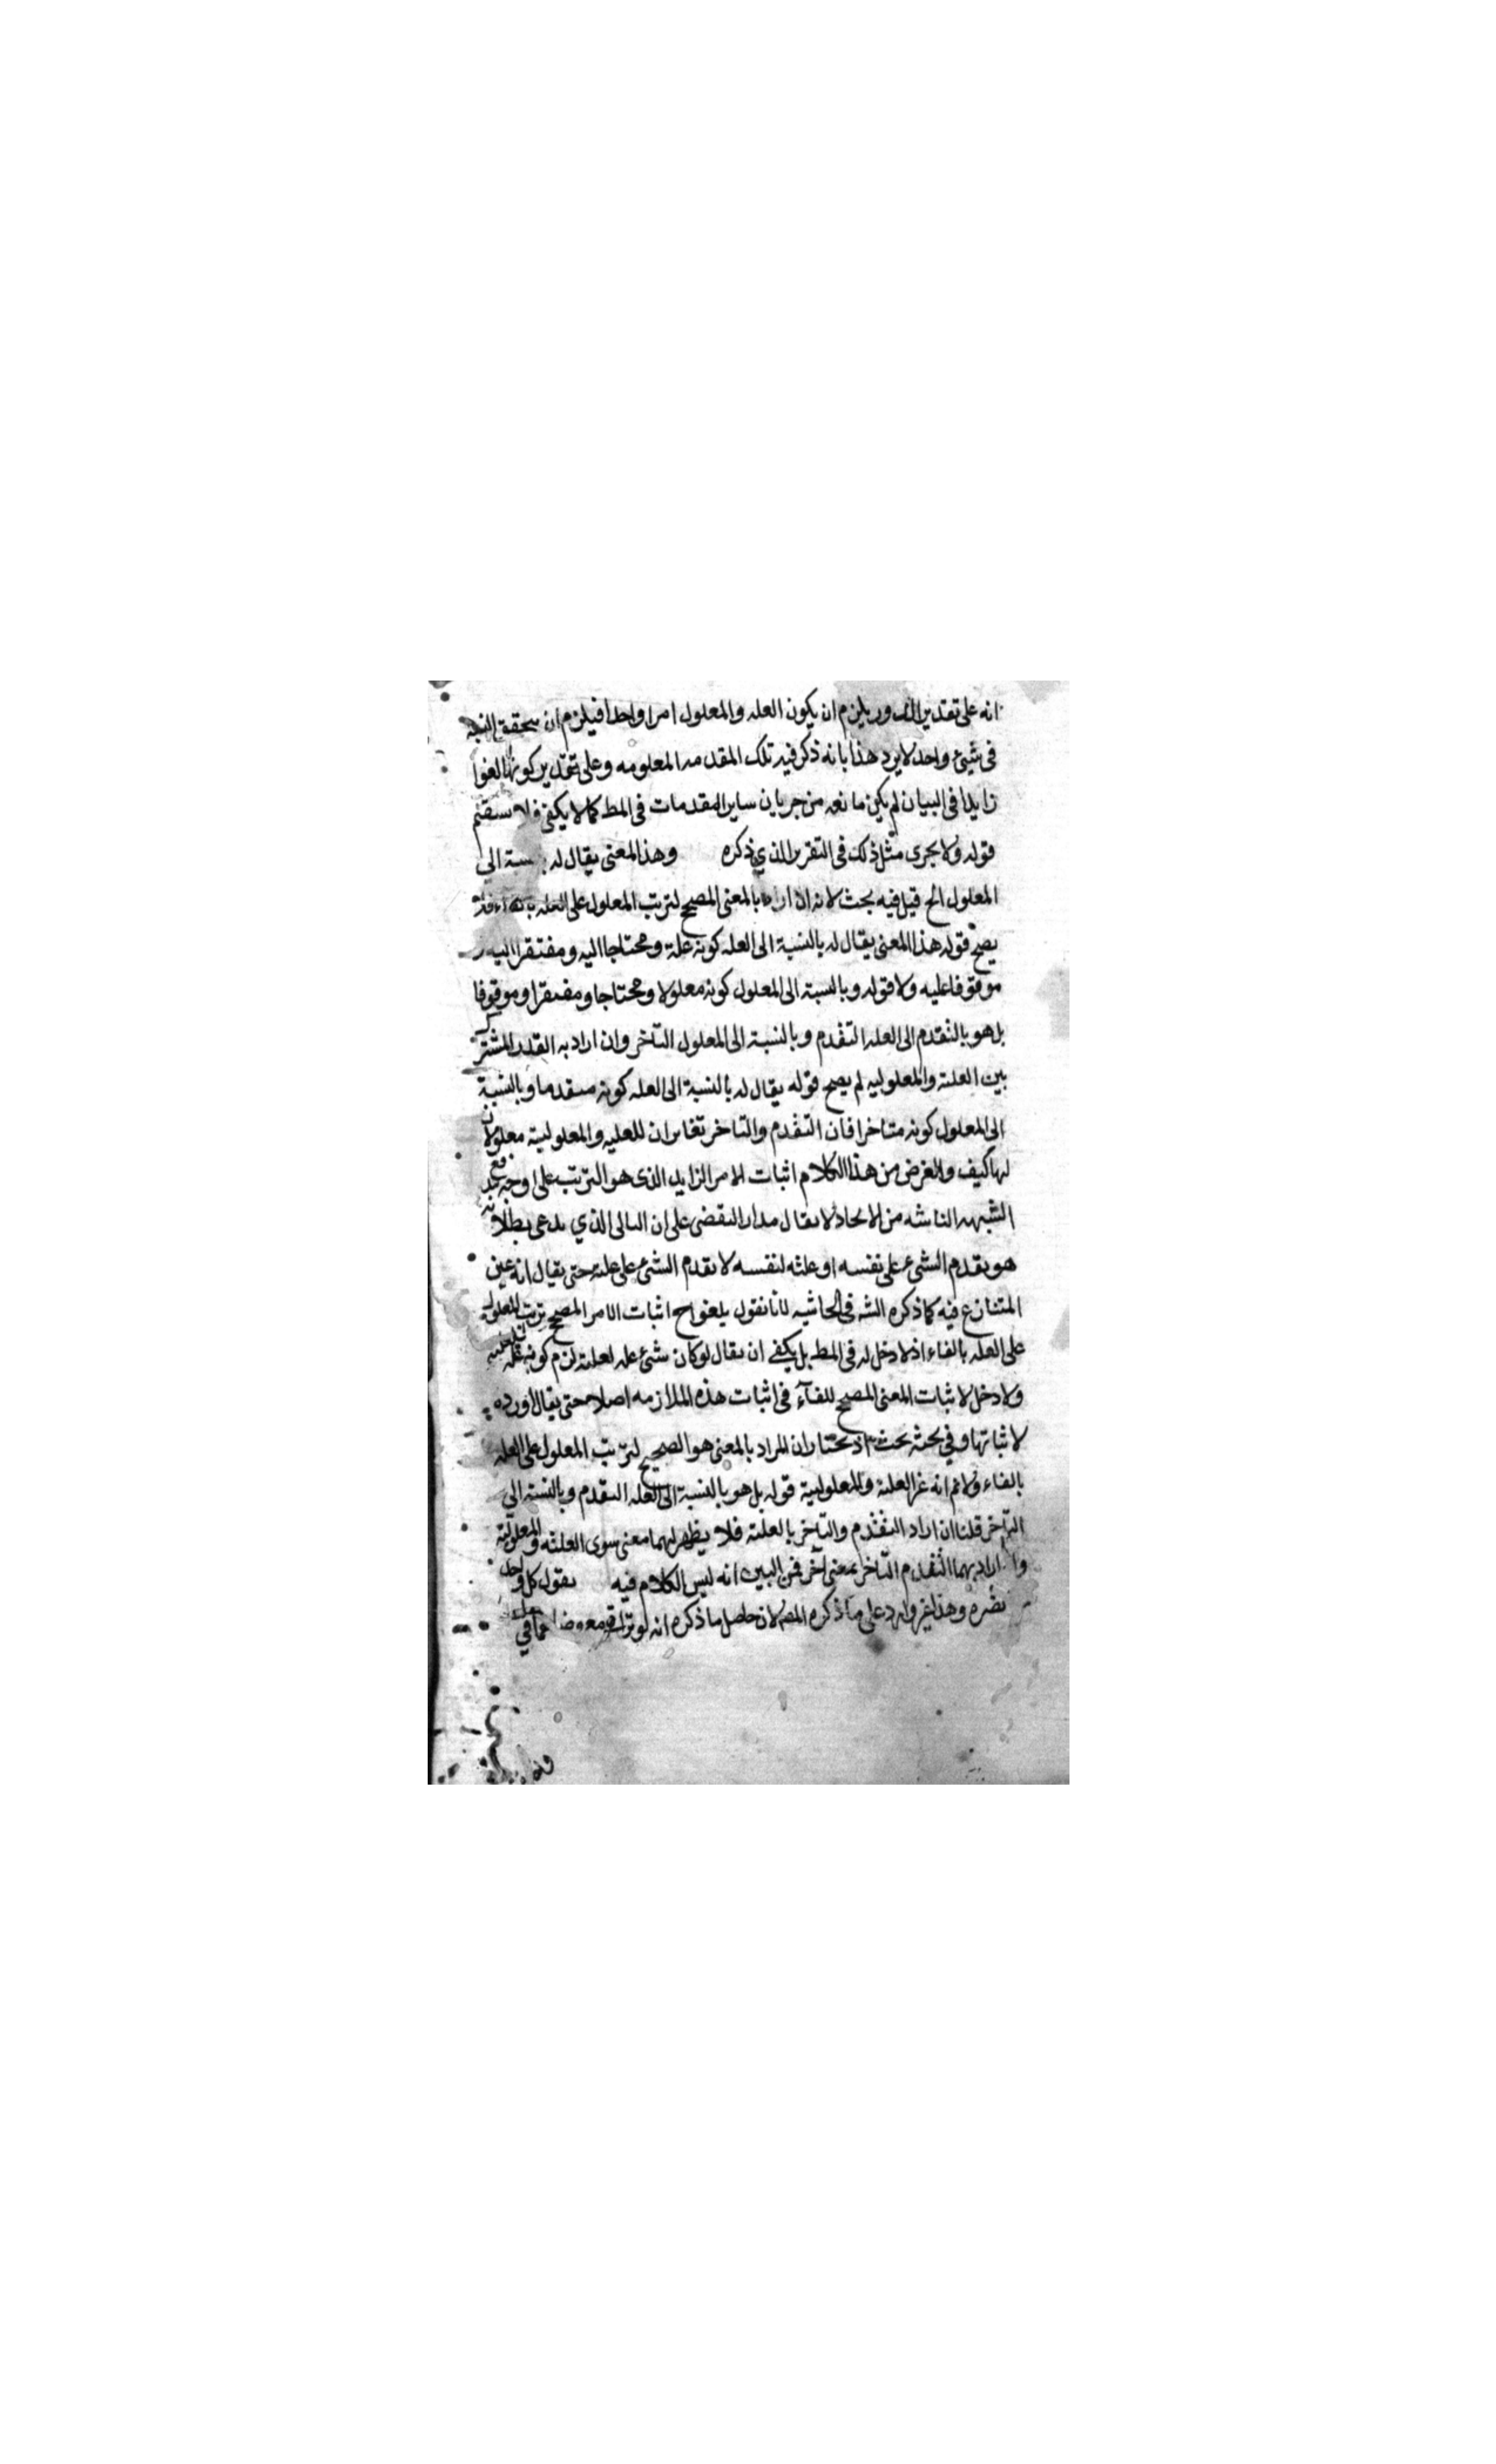 انه على تقدير الدور يلزم ان يكون العله والمعلول امرا واحدا فيلزم ان يتحقق النسبة
فى شيئ واحد لا يرد هذا بانه ذكر فيه تلك المقدمه المعلومه وعلى تقدير كونها لغوا
زايدا فى البيان لم يكن مانعه من جريان ساير المقدمات فى المط كما لا يخفى فلا يستقيم
قوله ولا يجرى مثل ذلك فى التقرير الذي ذكره وهذا المعنى يقال له بالنسبة الي
المعلول الخ قيل فيه بحث لانه ان اراد بالمعنى المصحح لترتب المعلول على العله بالفاء فلا
يصح قوله هذا المعنى يقال له بالنسبة الى العله كونه علة ومحتاجا اليه ومفتقرا اليه و
موقوفا عليه ولا قوله وبالنسبة الى المعلول كونه معلولا ومحتاجا ومفتقرا وموقوفا
بل هو بالتقدم الى العله التقدم وبالنسبة الى المعلول التاخر وان اراد به القدر المشترك
بين العلية والمعلوليه لم يصح قوله يقال له بالنسبة الى العله كونه متقدما وبالنسبة
الى المعلول كونه متاخرا فان التقدم والتاخر تغايران للعليه والمعلولية معلولان
لها كيف والغرض من هذا الكلام اثبات الامر الزايد الذى هو الترتب على وجه يندفع
الشبهه الناشه من الاتحاد لا يقال مدار النقض على ان التالى الذي يدعى بطلانه
هو تقدم الشيئ على نفسه او علته لنفسه لا تقدم الشيئ على علته حتى يقال انه عين
المتنازع فيه كما ذكره الشه فى الحاشيه لانا نقول يلغو اح اثبات الامر المصحح ترتب المعلول
على العله بالفاء اذ لا دخل له فى المط بل يكفى ان يقال لو كان شيئ عله لعلته لزم كونه عله لنفسه
ولا دخل لاثبات المعنى المصحح للفآء فى اثبات هذه الملازمه اصلا حتى يقال اورده
لاثباتها وفي بحثه بحث اذ نختار ان المراد بالمعنى هو الصحيح لترتب المعلول على العله
بالفاء ولا نم انه غر العلية والمعلولية قوله بل هو بالنسبة الى العله التقدم وبالنسبة الى
التآخر قلنا ان اراد التقدم والتآخر بالعلية فلا يظهر لهما معنى سوى العلية والمعلولية
وان اراد بهما التقدم التآخر بمعنى آخر فمن البين انه ليس الكلام فيه نقول كل واحد
وهذا غير وارد على ما ذكره المص لان حاصل ما ذكره انه لو